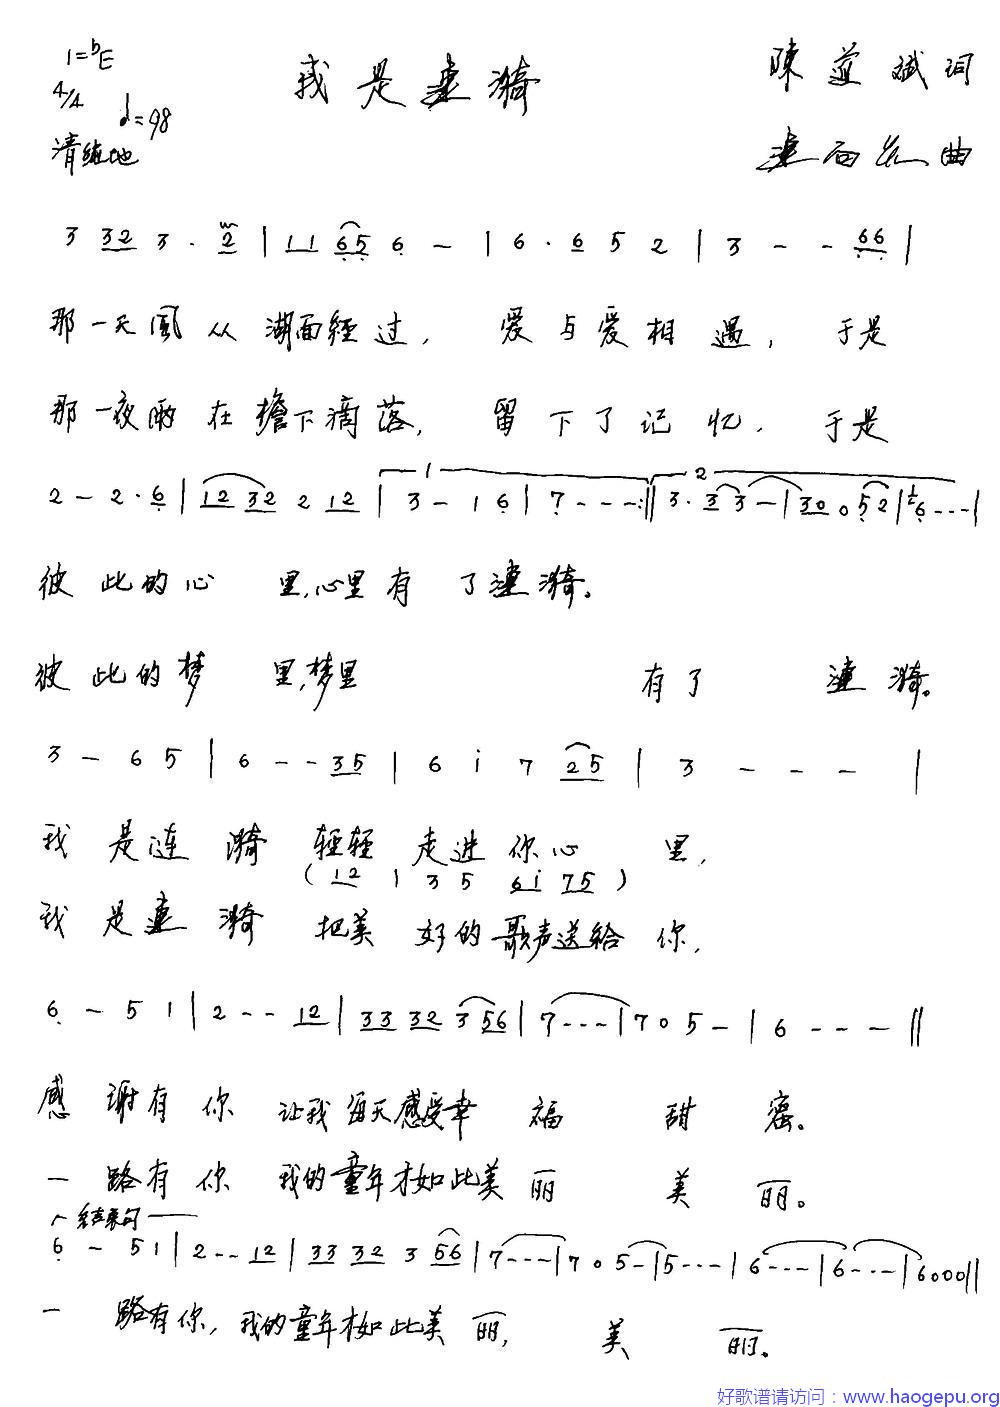 1=bE
我是漣漪
陳道斌词
4/4
♩=98
清纯地
漣向东曲
3 32 3 · 2 | 11 65 6 - | 6 · 6 5 2 | 3 - - 66 |
那一天風从湖面经过, 爱与爱相遇, 于是
那一夜雨在檐下滴落, 留下了记忆, 于是
2 - 2 · 6 | 12 32 2 12 | 1 3 - 1 6 | 7 - - - :|| 2 3 · 3 3 - | 30 0 52 | 6 - - - |
彼此的心里,心里有了漣漪。
彼此的梦里,梦里有了漣漪。
3 - 6 5 | 6 - - 35 | 6 i 7 25 | 3 - - - |
我是涟漪轻轻走进你心里,
( 12 1 3 5 6i 75 )
我是漣漪把美好的歌声送给你,
6 - 5 1 | 2 - - 12 | 33 32 3 56 | 7 - - - | 7 0 5 - | 6 - - - ||
感谢有你让我每天感受幸福甜蜜。
一路有你我的童年才如此美丽美丽。
结束句
6 - 5 1 | 2 - - 12 | 33 32 3 56 | 7 - - - | 7 0 5 - | 5 - - - | 6 - - - | 6 - - - | 6000 ||
一路有你,我的童年才如此美丽,美丽。
好歌谱请访问：www.haogepu.org